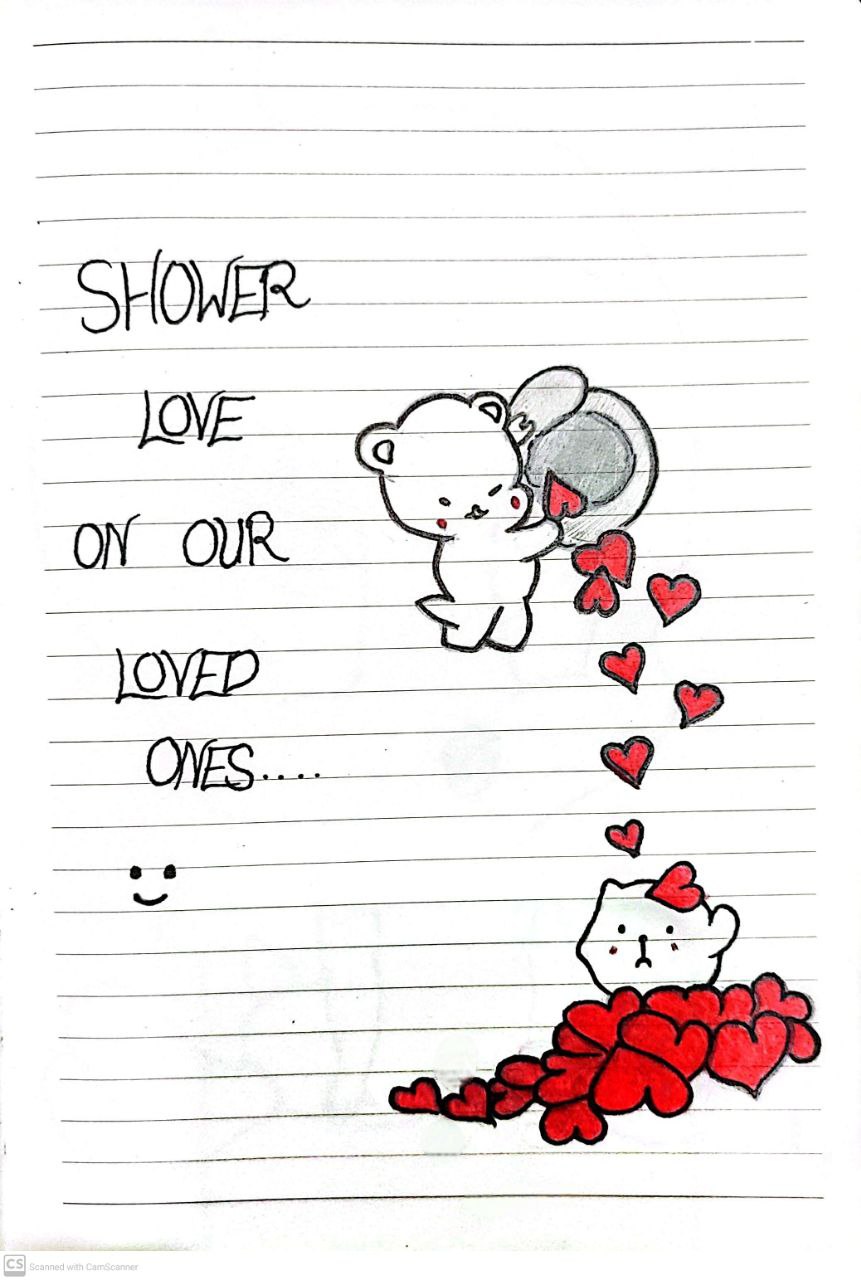 SHOWER
LOVE
ON OUR
LOVED
ONES....
CS Scanned with CamScanner